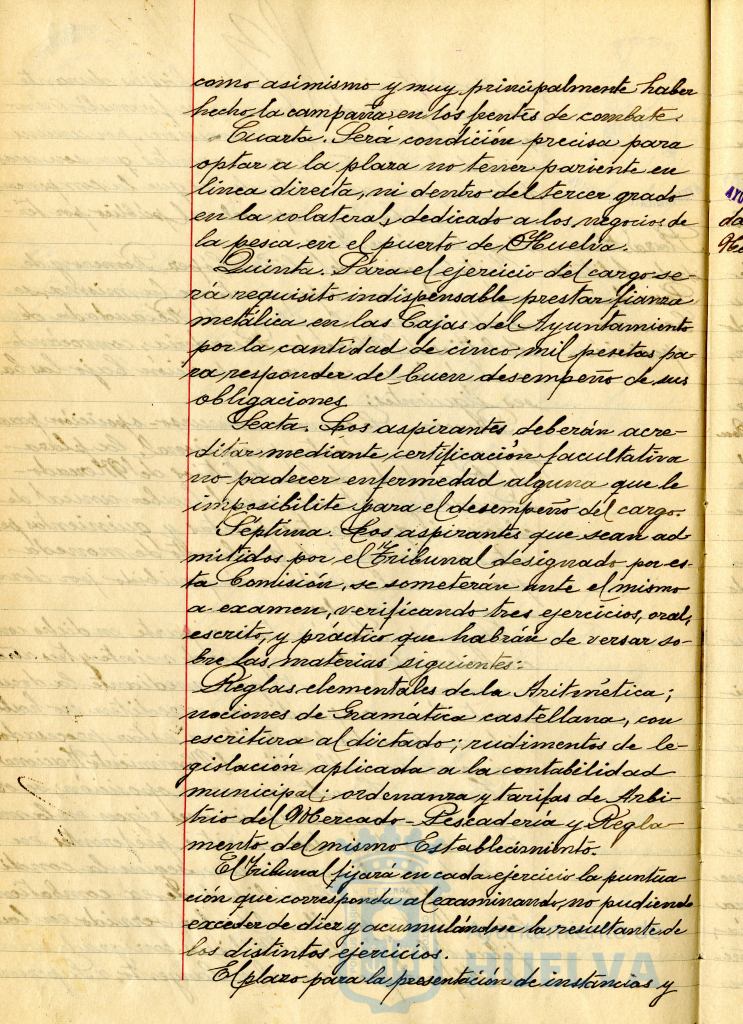 como asimismo y muy principalmente haber
hecho la campaña, en los frentes de combate.
Cuarta. Será condición precisa para
optar a la plaza no tener pariente en
línea directa, ni dentro del tercer grado
en la colateral, dedicado a los negocios de
la pesca en el puerto de Huelva.
Quinta. Para el ejercicio del cargo se-
rá requisito indispensable prestar fianza
metálica en las Cajas del Ayuntamiento
por la cantidad de cinco mil pesetas pa-
ra responder del buen desempeño de sus
obligaciones
Sexta. Los aspirantes deberán acre-
ditar mediante certificación facultativa
no padecer enfermedad alguna que le
imposibilite para el desempeño del cargo.
Séptima. Los aspirantes que sean ad-
mitidos por el Tribunal designado por es-
ta Comisión, se someterán ante el mismo
a examen, verificando tres ejercicios, oral,
escrito, y práctico que habrán de versar so-
bre las materias siguientes:
Reglas elementales de la Aritmética;
nociones de Gramática castellana, con
escritura al dictado; rudimentos de le-
gislación aplicada a la contabilidad
municipal; ordenanza y tarifas de Arbi-
trio del Mercado-Pescadería y Regla-
mento del mismo Establecimiento.
El Tribunal fijará en cada ejercicio la puntua-
ción que corresponda al examinando, no pudiendo
exceder de diez y acumulándose la resultante de
los distintos ejercicios.
El plazo para la presentación de instancias y
HUELVA